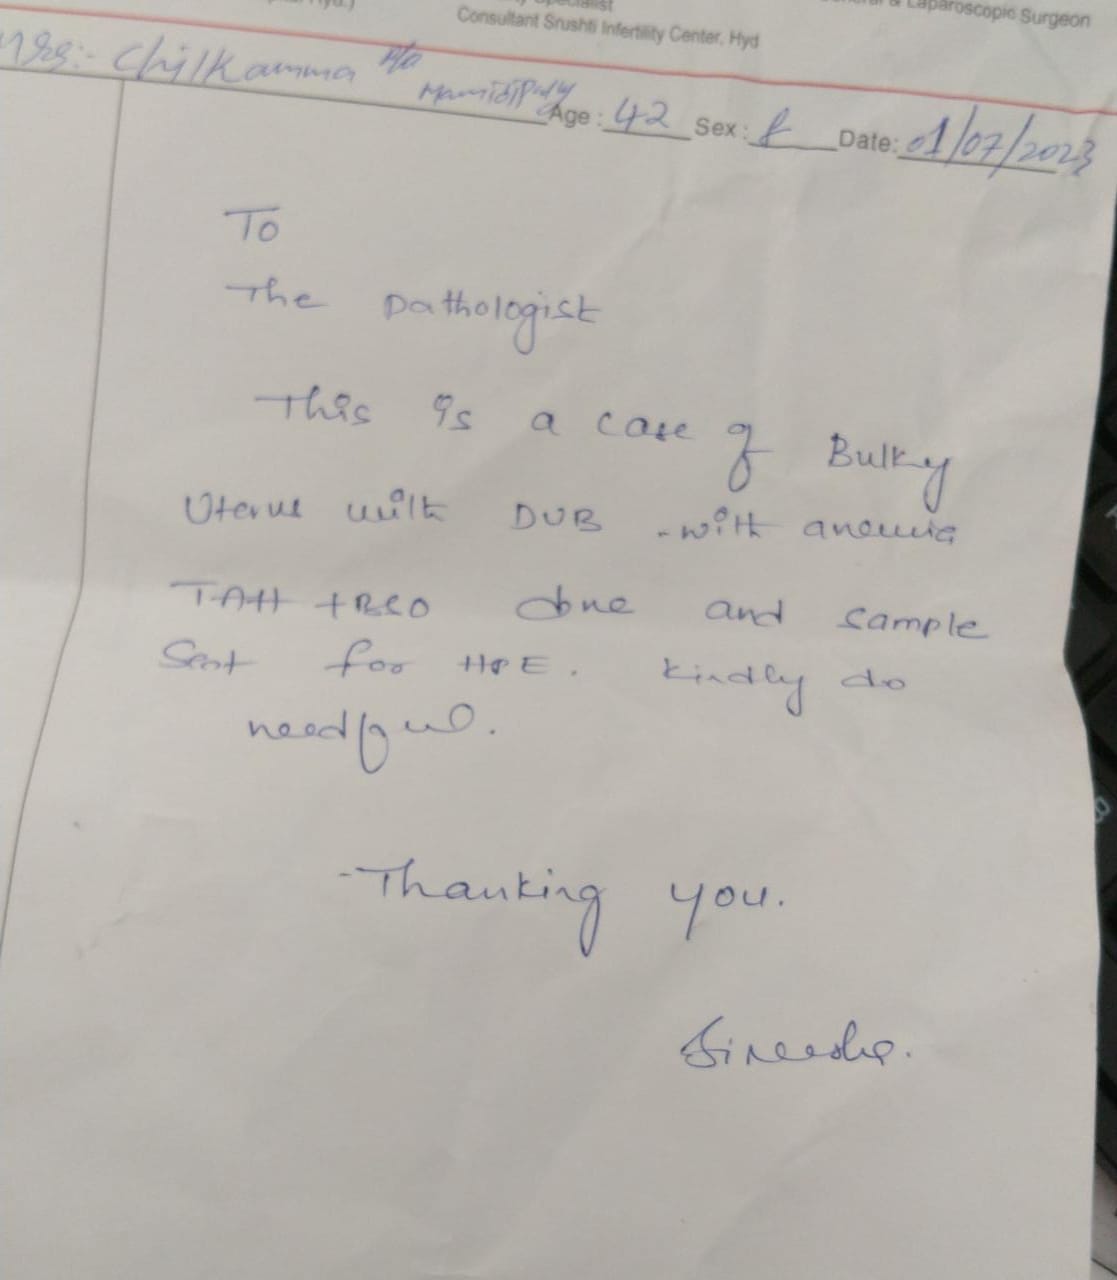 Consultant Srushti Infertility Center, Hyd
Laparoscopic Surgeon
Mrs:- Chilkamma R/o
Mamidipally
Age: 42 Sex: F Date: 01/07/2023
To
The pathologist
This is a case of Bulky
Uterus with DUB - with anemia
TAH + BSO done and sample
Sent for HPE. Kindly do
needful.
-Thanking you.